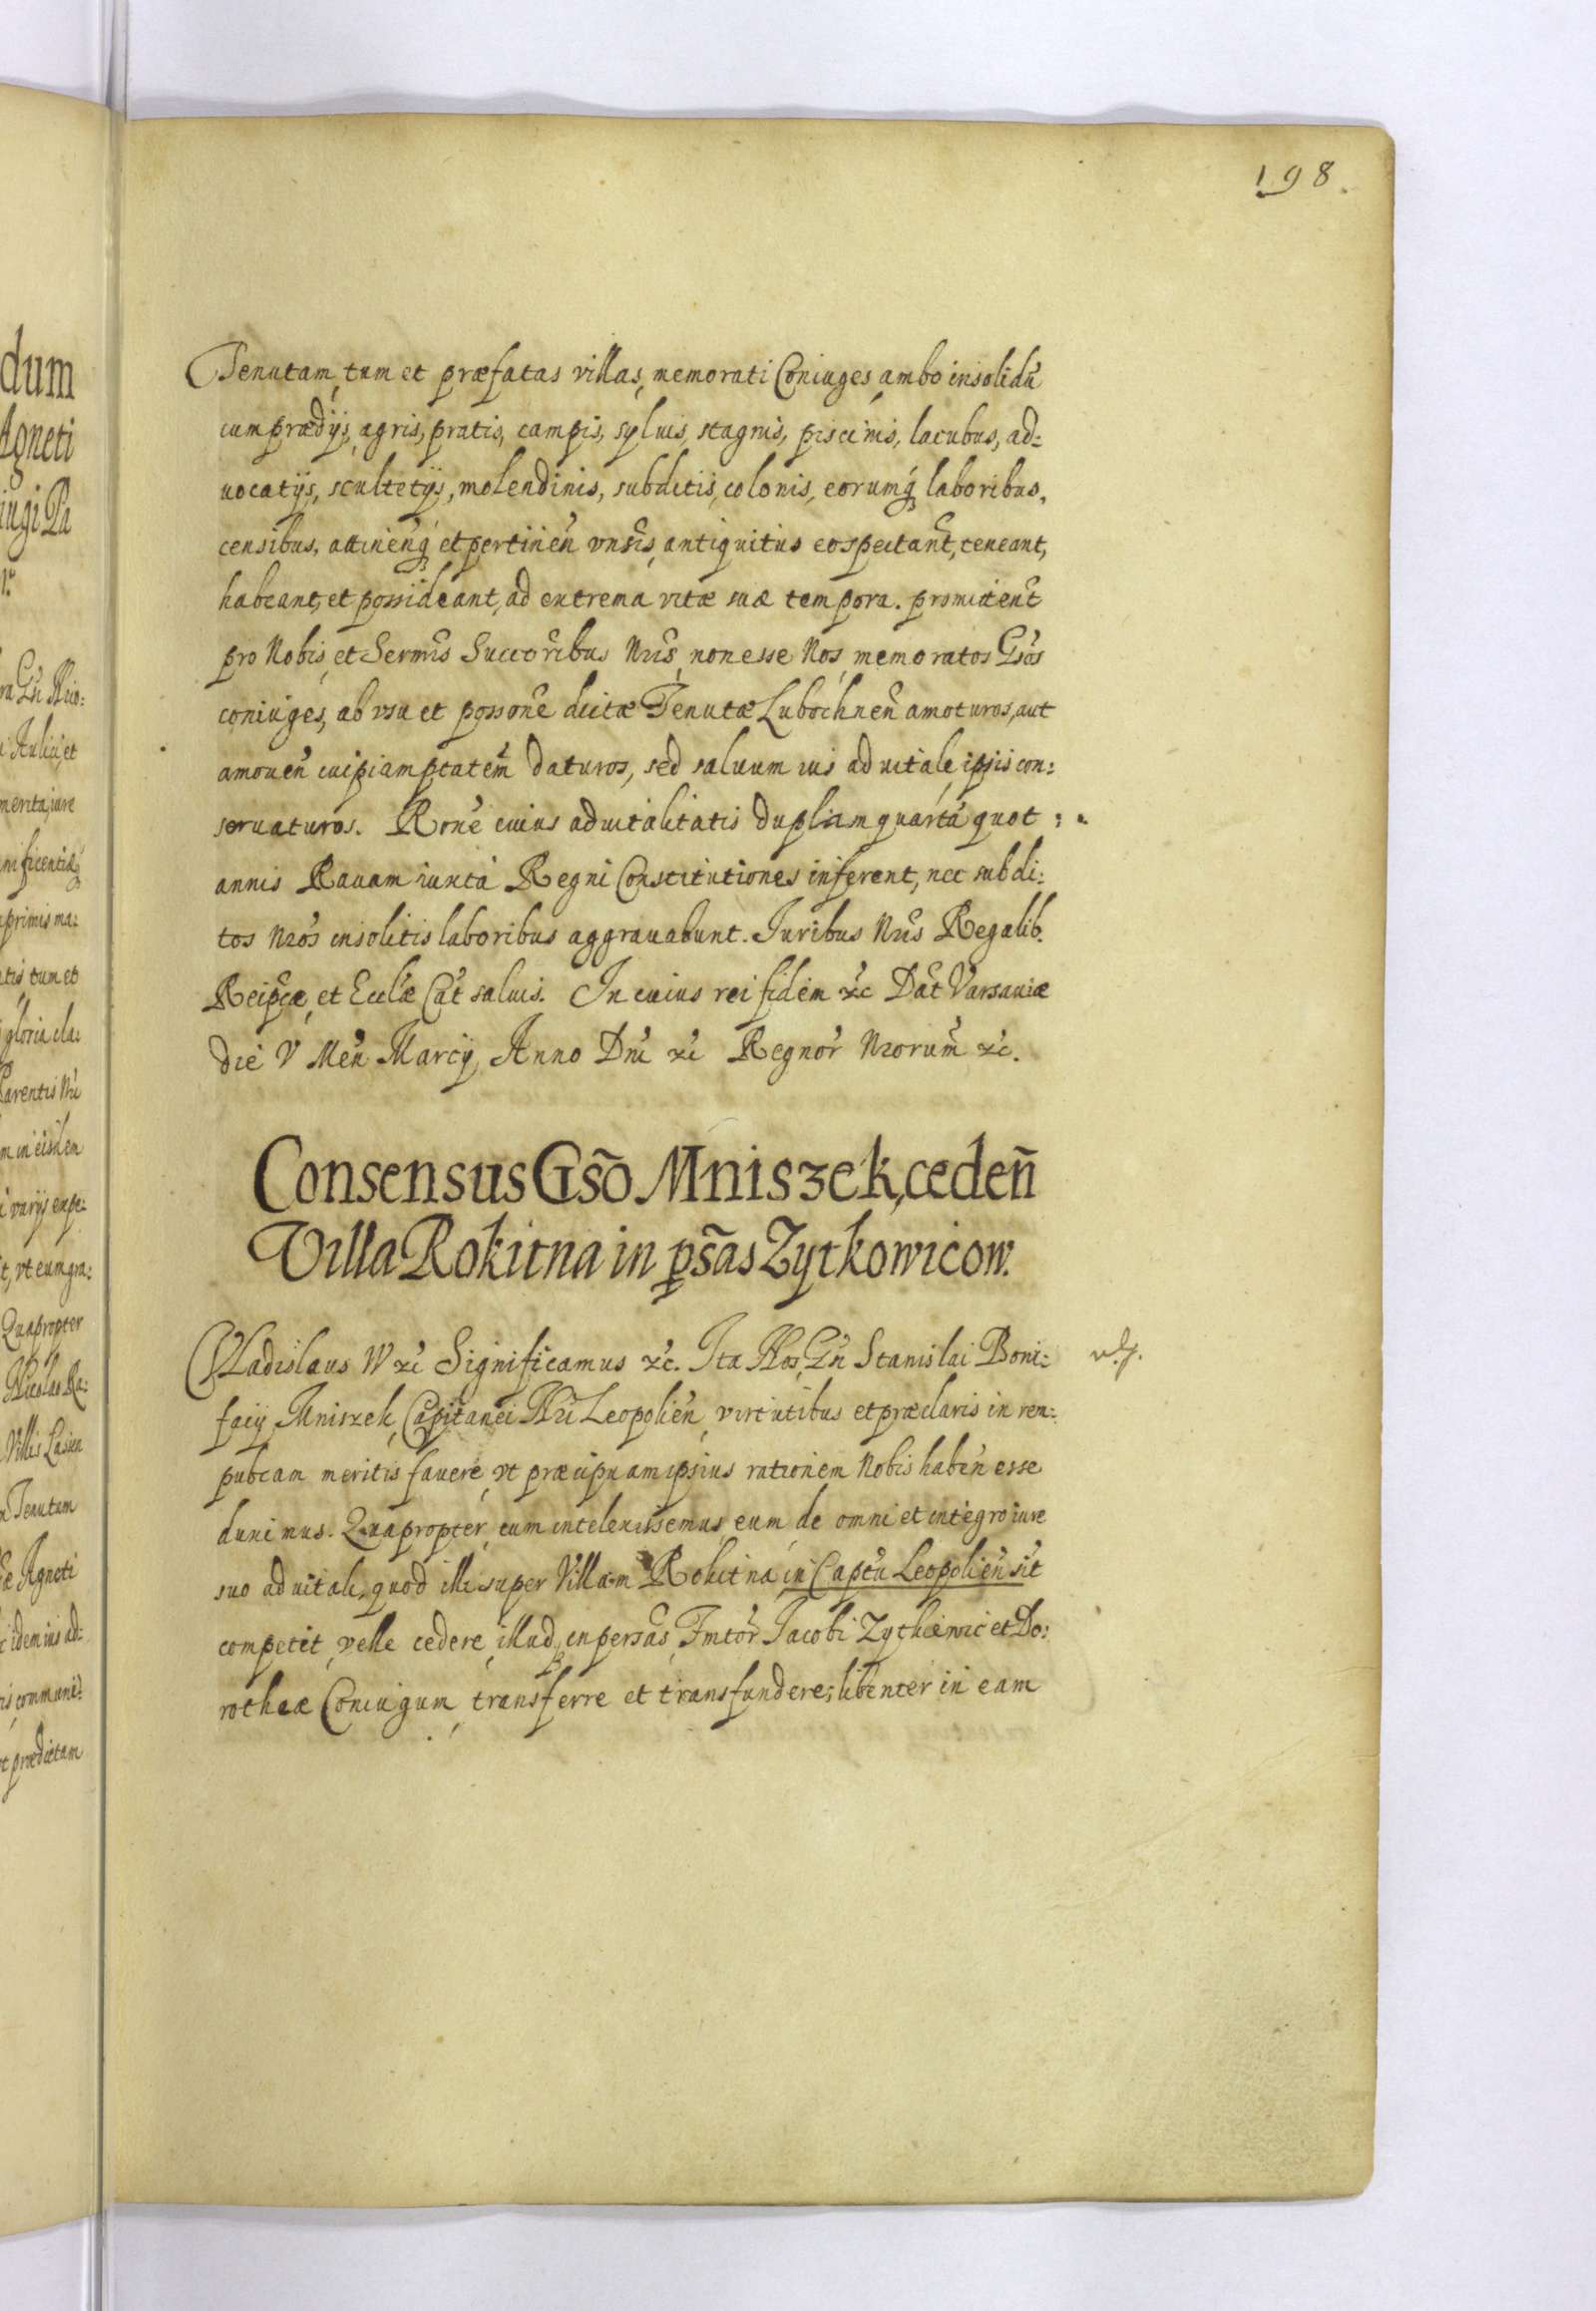 198.
dum
Agneti
iugi Pa
Tenutam, tum et præfatas villas, memorati Coniuges ambo insolidũ
cum prædijs, agris, pratis, campis, syluis, stagnis, piscinis, lacubus, ad:
uocatijs, scultetijs, molendinis, subditis, colonis, eorumq́ laboribus,
censibus, attineñq́ et pertineñ vnsis, antiquitus eo spectant̃, teneant,
habeant, et possideant, ad extrema vitæ suæ tempora. promitent̃
pro Nobis, et Sermis Succoribus Nris, non esse Nos, memoratos Gsos
coniuges, ab vsu et possone dictæ Tenutæ Lubochneñ amoturos, aut
amoueñ cuipiam ptatem̃ daturos, sed saluum ius aduitale ipsis con:
seruaturos. Rone cuius aduitalitatis duplam quartã quot:
annis Rauam iuxta Regni Constitutiones inferent, nec subdi:
tos nros insolitis laboribus aggrauabunt. Iuribus Nris Regalib.
Reipcæ, et Eccliæ Cat̃ saluis. In cuius rei fidem xc Dat̃ Varsauiæ
die V Meñ Marcij, Anno Dni xc Regnor̃ Nrorum̃ xc.
Consensus Gso Mniszek, cedeñ
Villa Rokitna in psas Zytkowicow.
Vladislaus IV xc Significamus xc. Ita Nos, Gñ Stanislai Boni:
facij Mniszek, Capitanei Nri Leopolieñ, virtutibus et præclaris in rem:
pubcam meritis fauere, vt præcipuam ipsius rationem Nobis habeñ esse
duximus. Quapropter, cum intelexissemus, eum de omni et integro iure
suo aduitali, quod illi super Villam Rokitna in Captu Leopolieñ sit̃
competit, velle cedere, illud in persas, Fmtor̃ Iacobi Zytkiewic et Do:
rotheæ Coniugum, transferre et transfundere; libenter in eam